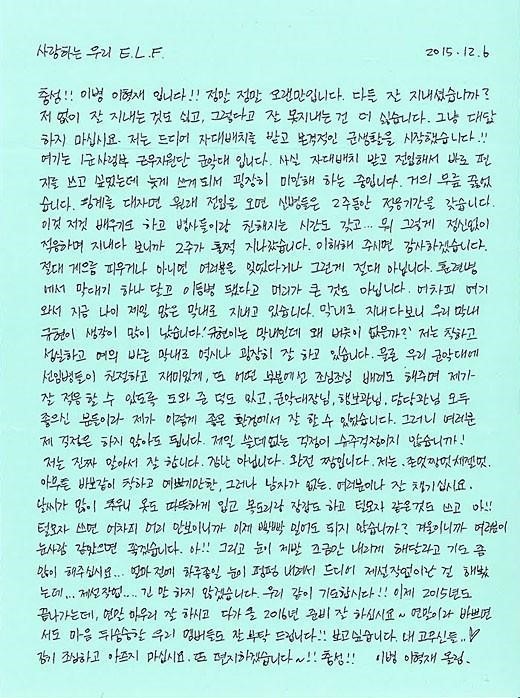 사랑하는 우리 E.L.F. 2015.12.6
충성!! 이병 이혁재 입니다!! 정말 정말 오랜만입니다. 다들 잘 지내셨습니까?
저 없이 잘 지내는것도 싫고, 그렇다고 잘 못지내는건 더 싫습니다. 그냥 대답
하지 마십시요. 저는 드디어 자대배치를 받고 본격적인 군생활을 시작했습니다.!!
여기는 1군사령부 근무지원단 군악대 입니다. 사실 자대배치 받고 전입해서 바로 편
지를 쓰고 싶었는데 늦게 쓰게 되서 굉장히 미안해 하는 중입니다. 거의 무릎 꿇었
습니다. 핑계를 대자면 원래 전입을 오면 신병들은 2주동안 적응기간을 갖습니다.
이것 저것 배우기도 하고 병사들이랑 친해지는 시간도 갖고... 뭐 그렇게 정신없이
적응하며 지내다 보니까 2주가 훌쩍 지나갔습니다. 이해해 주시면 감사하겠습니다.
절대 게으름 피우거나 아니면 여러분을 잊었다거나 그런게 절대 아닙니다. 훈련병
에서 막대기 하나 달고 이등병 됐다고 머리가 큰 것도 아닙니다. 어차피 여기
와서 지금 나이 제일 많은 막내로 지내고 있습니다. 막내로 지내다보니 우리 막내
규현이 생각이 많이 났습니다.'규현이는 막내인데 왜 버릇이 없을까?' 저는 착하고
성실하고 예의 바른 막내로 역시나 굉장히 잘 하고 있습니다. 물론 우리 군악대에
선임병들이 친절하고 재미있게, 또 어떤 부분에선 조심조심 배려도 해주며 제가
잘 적응 할 수 있도록 도와 준 덕도 있고, 군악대장님, 행보관님, 담당관님 모두
좋으신 분들이라 제가 이렇게 좋은 환경에서 잘 할 수 있었습니다. 그러니 여러분
제 걱정은 하지 않아도 됩니다. 제일 쓸데없는 걱정이 슈주걱정이지 않습니까!
저는 진짜 알아서 잘 합니다. 장난 아닙니다. 완전 짱입니다. 저는.
아무튼 바보같이 착하고 예쁘기만한, 그러나 남자가 없는. 여러분이나 잘 챙기십시요.
날씨가 많이 추우니 옷도 따뜻하게 입고 목도리랑 장갑도 하고 털모자 같은것도 쓰고 아!!
털모자 쓰면 어차피 머리 안보이니까 이제 빡빡 밀어도 되지 않습니까? 겨울이니까 여러분이
눈사람 같았으면 좋겠습니다. 아!! 그리고 눈이 제발 조금만 내리게 해달라고 기도 좀
많이 해주십시요... 얼마전에 하루종일 눈이 펑펑 내려서 드디어 제설작업이란 걸 해봤
는데... 제설작업... 긴 말 하지 않겠습니다. 우리 같이 기도합시다!! 이제 2015년도
끝나가는데, 연말 마무리 잘 하시고 다가 올 2016년 준비 잘 하십시요~ 연말이라 바쁘면
서도 마음 뒤숭숭할 우리 멤버들도 잘 부탁 드립니다!! 보고싶습니다. 내 고무신들..♡
감기 조심하고 아프지 마십시요. 또 편지하겠습니다~!! 충성!! 이병 이혁재 올림.